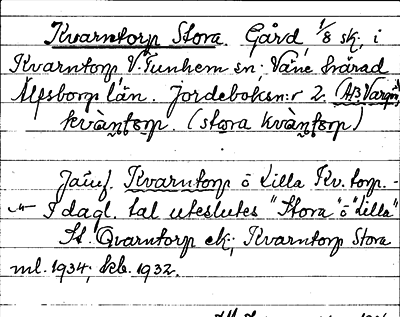 Kvarntorp Stora. Gård 1/8 sk. i
Kvarntorp V. Tunhem sn; Väne härad
Älfsborgs län. Jordeboksn:r 2. (AB Vargön)
kvàṇtọrp. (stọra kvàṇtọrp)
Jämf. Kvarntorp ö Lilla Kv. torp. -
I dagl. tal uteslutes "Stora" ö "Lilla"
St. Qvarntorp ek; Kvarntorp Stora
ml. 1934; skb. 1932.